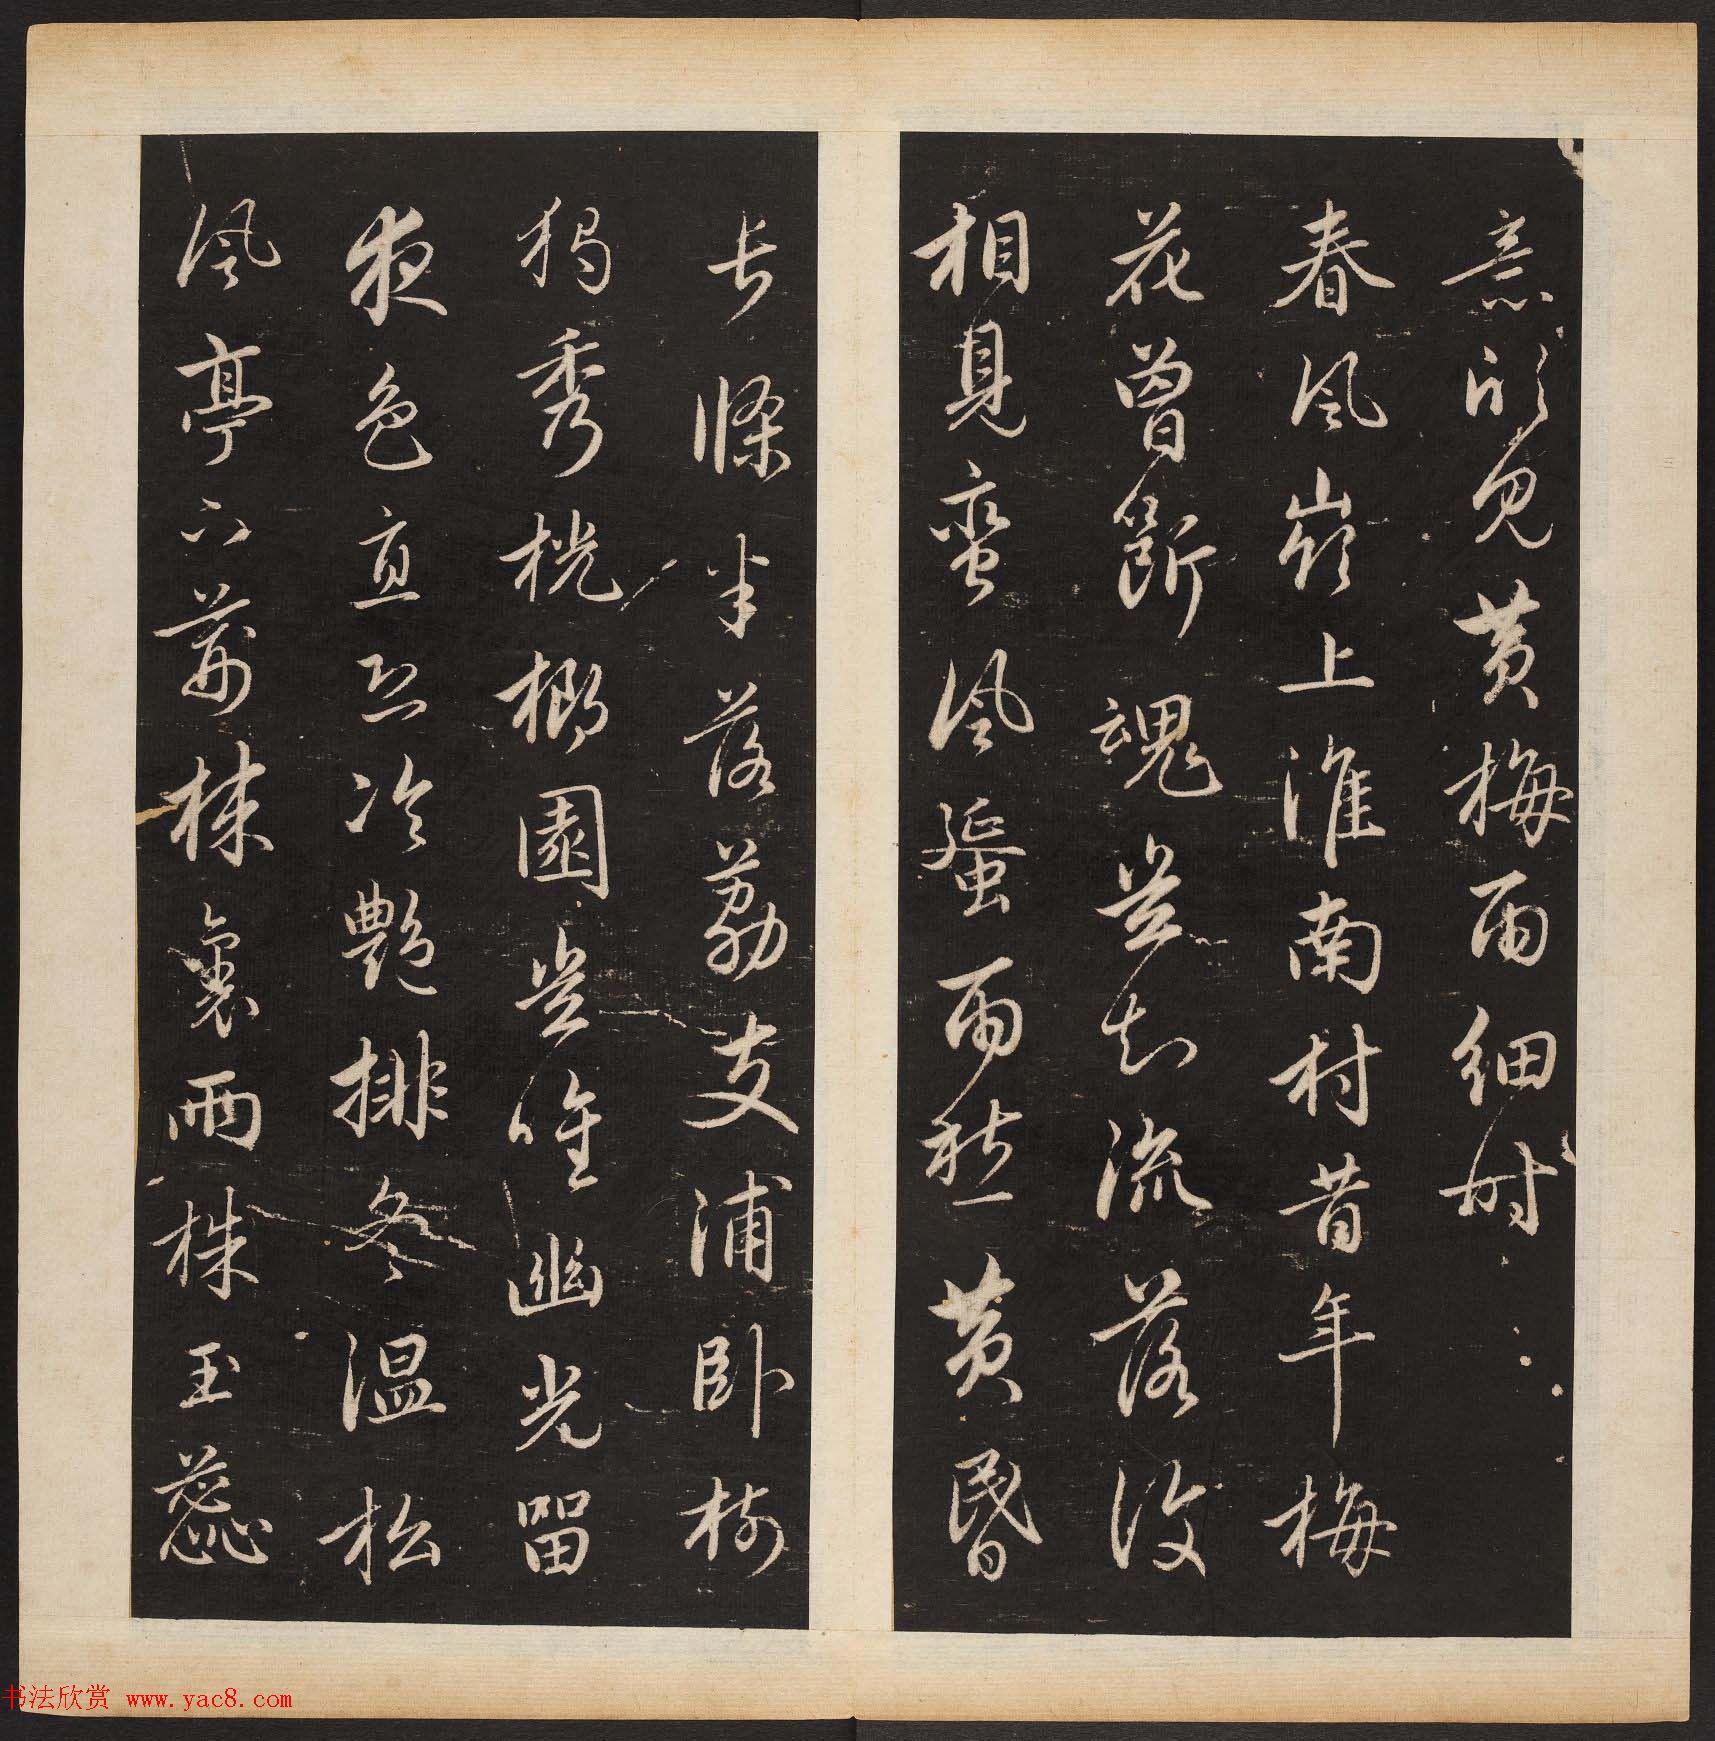 意行見黄梅雨細時
春風嶺上淮南村昔年梅
花曽斷魂豈知流落復
相見蠻風蜑雨愁黄昏
長條半落荔支浦卧樹
獨秀桄榔園豈唯幽光留
夜色直恐冷艷排冬温松
風亭下荊棘裏兩株玉蕊
书法欣赏 www.yac8.com